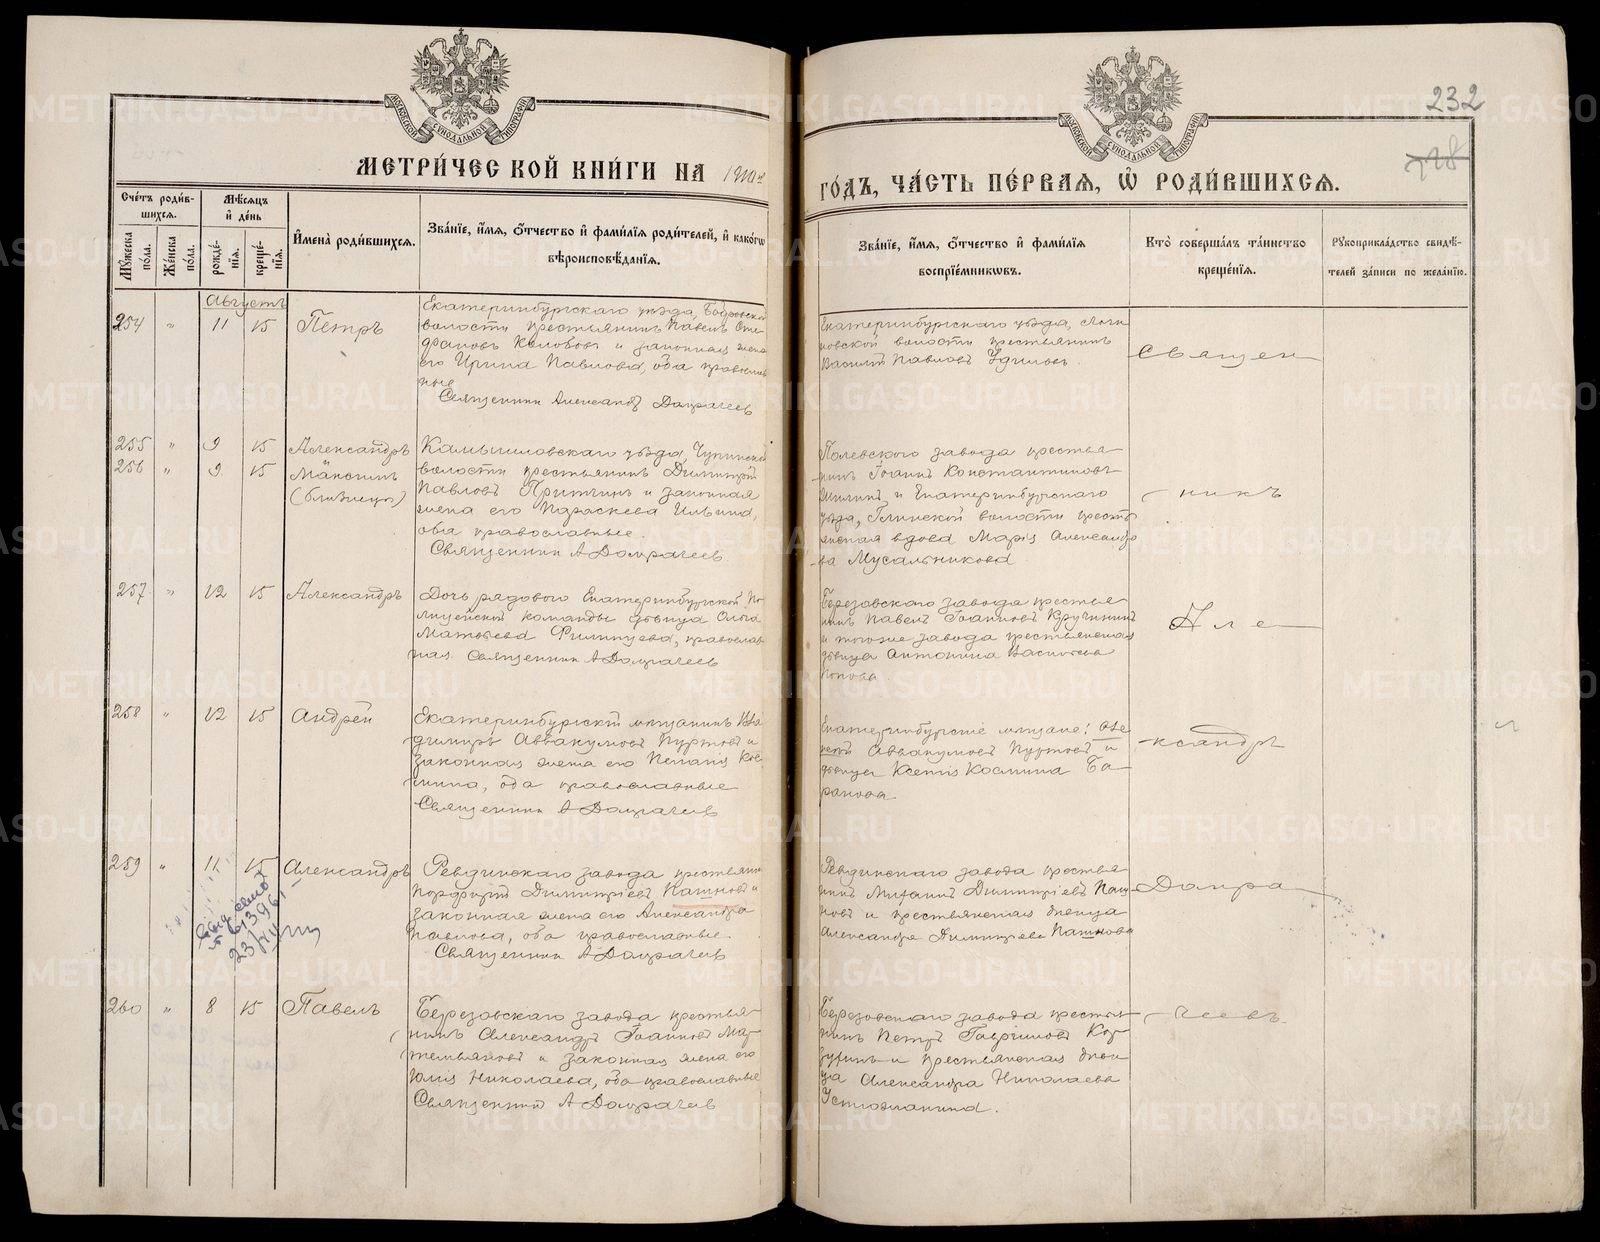 232
МЕТРИ́ЧЕСКОЙ КНИ́ГИ НА
ГО́ДЪ, ЧА́СТЬ ПЕ́РВАЯ, Ѡ҆ РОДИ́ВШИХСЯ.
МОСКОВСКОЙ СѴНОДАЛЬНОЙ ТИПОГРАФІИ
МОСКОВСКОЙ СѴНОДАЛЬНОЙ ТИПОГРАФІИ
Сче́тъ роди́в-
шихся.
Мѣ́сяцъ
и҆ де́нь
Мꙋ́жеска по́ла.
Же́нска по́ла.
рожде́-
нїя.
креще́-
нїя.
И҆мена̀ роди́вшихся.
Зва́нїе, и҆́мя, ѻ҆́тчество и҆ фами́лїя роди́телей, и҆ како́гѡ
вѣроисповѣ́данїя.
Зва́нїе, и҆́мя, ѻ҆́тчество и҆ фами́лїя
воспрїе́мникѡвъ.
Кто̀ соверша́лъ та́инство
креще́нїя.
Рꙋкоприкла́дство свидѣ́-
телей за́писи по жела́нїю.
Августъ
254 " 11 15 Петръ
Екатеринбургскаго уѣзда, Бобровской
волости крестьянинъ Павелъ Сте-
фановъ и законная жена
его Ирина Павлова, оба православ-
ные
Священник Александр Домрачеев
Екатеринбургскаго уѣзда,
волости крестьянинъ
Василій Павловъ
Священ
255 " 9 15 Александръ
256 " 9 15 Максимъ
(близнецы)
Камышловскаго уѣзда,
волости крестьянинъ Димитрій
Павловъ и законная
жена его Параскева Ильина,
оба православные.
Священник А Домрачеев
Полевского завода крестья-
нинъ Іоаннъ Константиновъ
и Екатеринбургскаго
уѣзда, Глинской волости кресть-
янская вдова Марія Александро-
ва Мусальникова
никъ
257 " 12 15 Александръ
Дочь рядового Екатеринбургской По-
лицейской команды дѣвица Ольга
Матвѣева православ-
ная Священник А Домрачеев
Березовскаго завода крестья-
нинъ Павелъ Іоанновъ Кручининъ
и того же завода крестьянская
дѣвица Антонина Васильева
Попова.
Але
258 " 12 15 Андрей
Екатеринбургскій мѣщанинъ Вла-
димиръ Аввакумовъ и
законная жена его Пелагія Кос-
мина, оба православные
Священник А Домрачеев
Екатеринбургскіе мѣщане: Але-
ксѣй Аввакумовъ и
дѣвица Ксенія Космина Ба-
ранова
ксандръ
259 " 11 15 Александръ
Ревдинскаго завода крестьянинъ
Порфирій Димитріевъ Пашновъ и
законная жена его Александра
Павлова, оба православные.
Священник А Домрачеев
Ревдинскаго завода крестья-
нинъ Михаилъ Димитріевъ Паш-
новъ и крестьянская дѣвица
Александра Димитріева Пашнова
Домра
260 " 8 15 Павелъ
Березовскаго завода крестья-
нинъ Александръ Іоанновъ Мар-
темьяновъ и законная жена его
Юлія Николаева, оба православные
Священник А Домрачеев
Березовскаго завода крестья-
нинъ Петръ Гавріиловъ
и крестьянская дѣви-
ца Александра Николаева
Устюжанина.
чеевъ.
METRIKI.GASO-URAL.RU